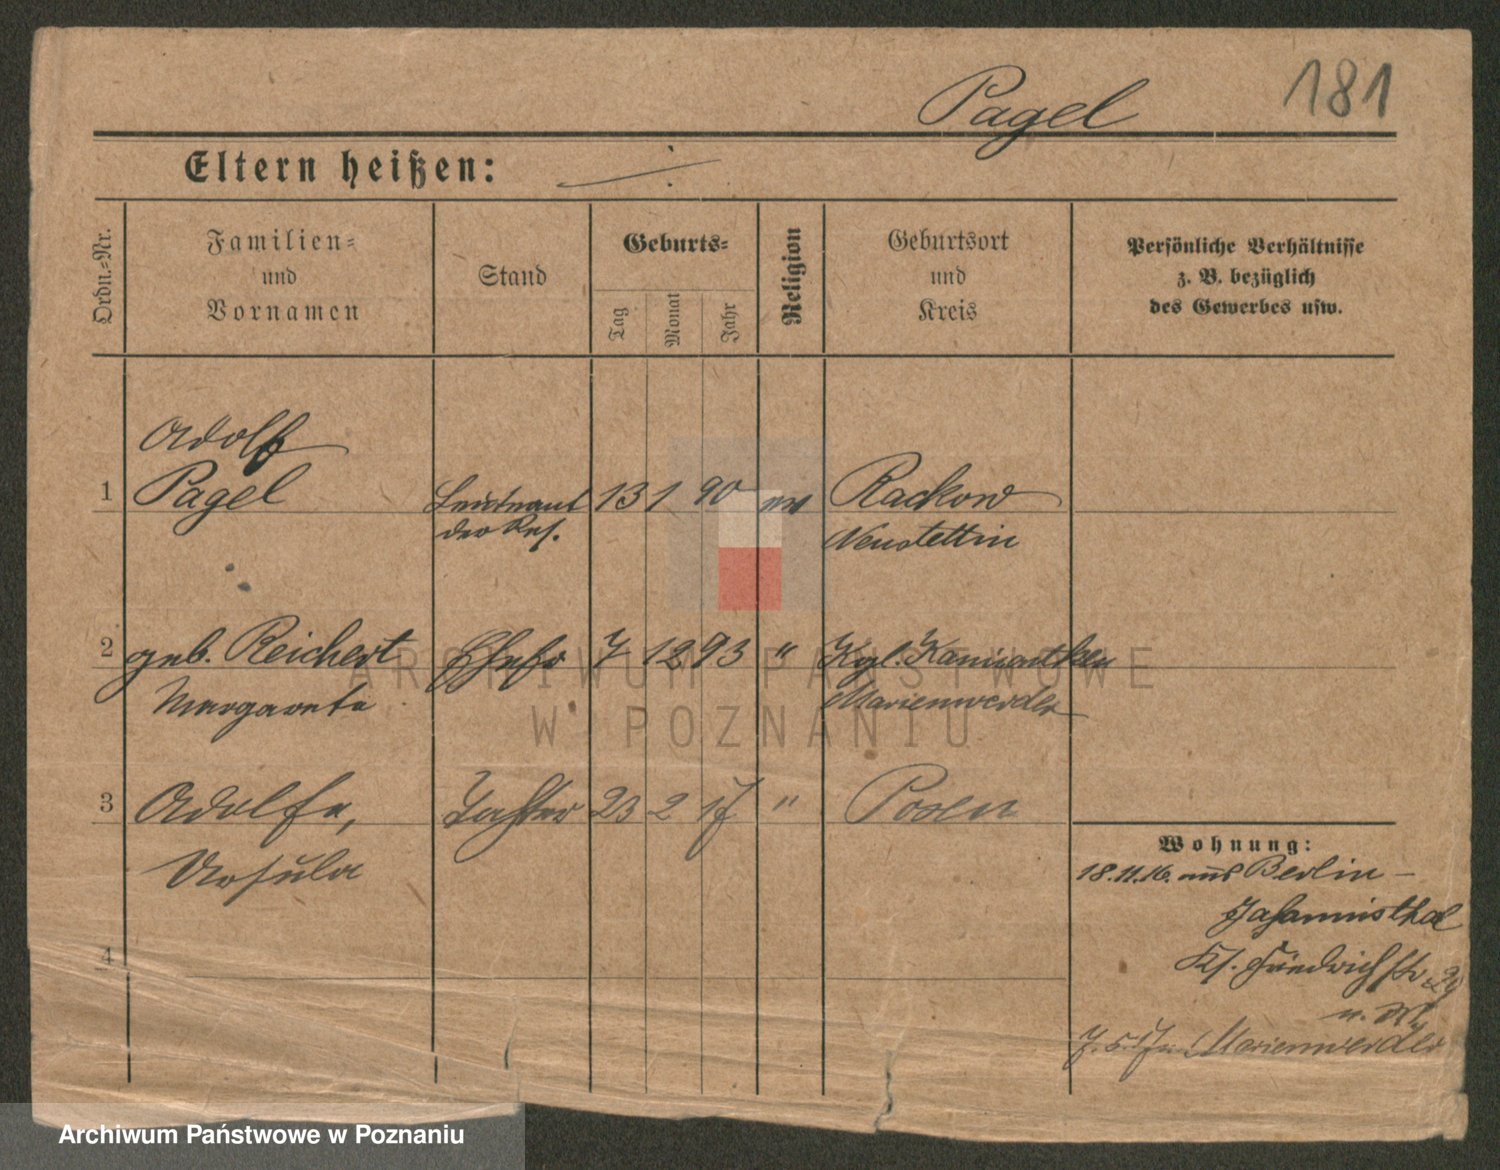 Pagel
181
Eltern heißen:
Ordn.-Nr.
Familien-
und
Vornamen
Stand
Geburts-
Tag
Monat
Jahr
Religion
Geburtsort
und
Kreis
Persönliche Verhältnisse
z. B. bezüglich
des Gewerbes usw.
Adolf
1 Pagel Leutnant 13 1 90 ev Rackow
der Res. Neustettin
2 geb. Reichert Ehefr 7 12 93 " Kgl.
Margarete Marienwerder
3 Adolfe, Tochter 23 2 17 " Posen
Ursula
Wohnung:
18.11.16. aus Berlin-
Johannisthal
Friedrichstr 29
4
Marienwerder
ARCHIWUM PAŃSTWOWE
W POZNANIU
Archiwum Państwowe w Poznaniu